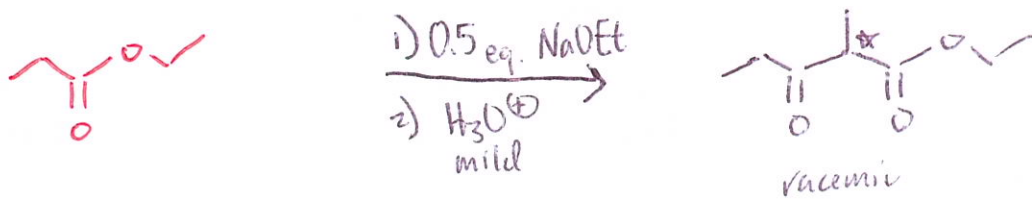 1) 0.5 eq. NaOEt
2) H₃O⊕
mild
O
O
O
O
O
racemic